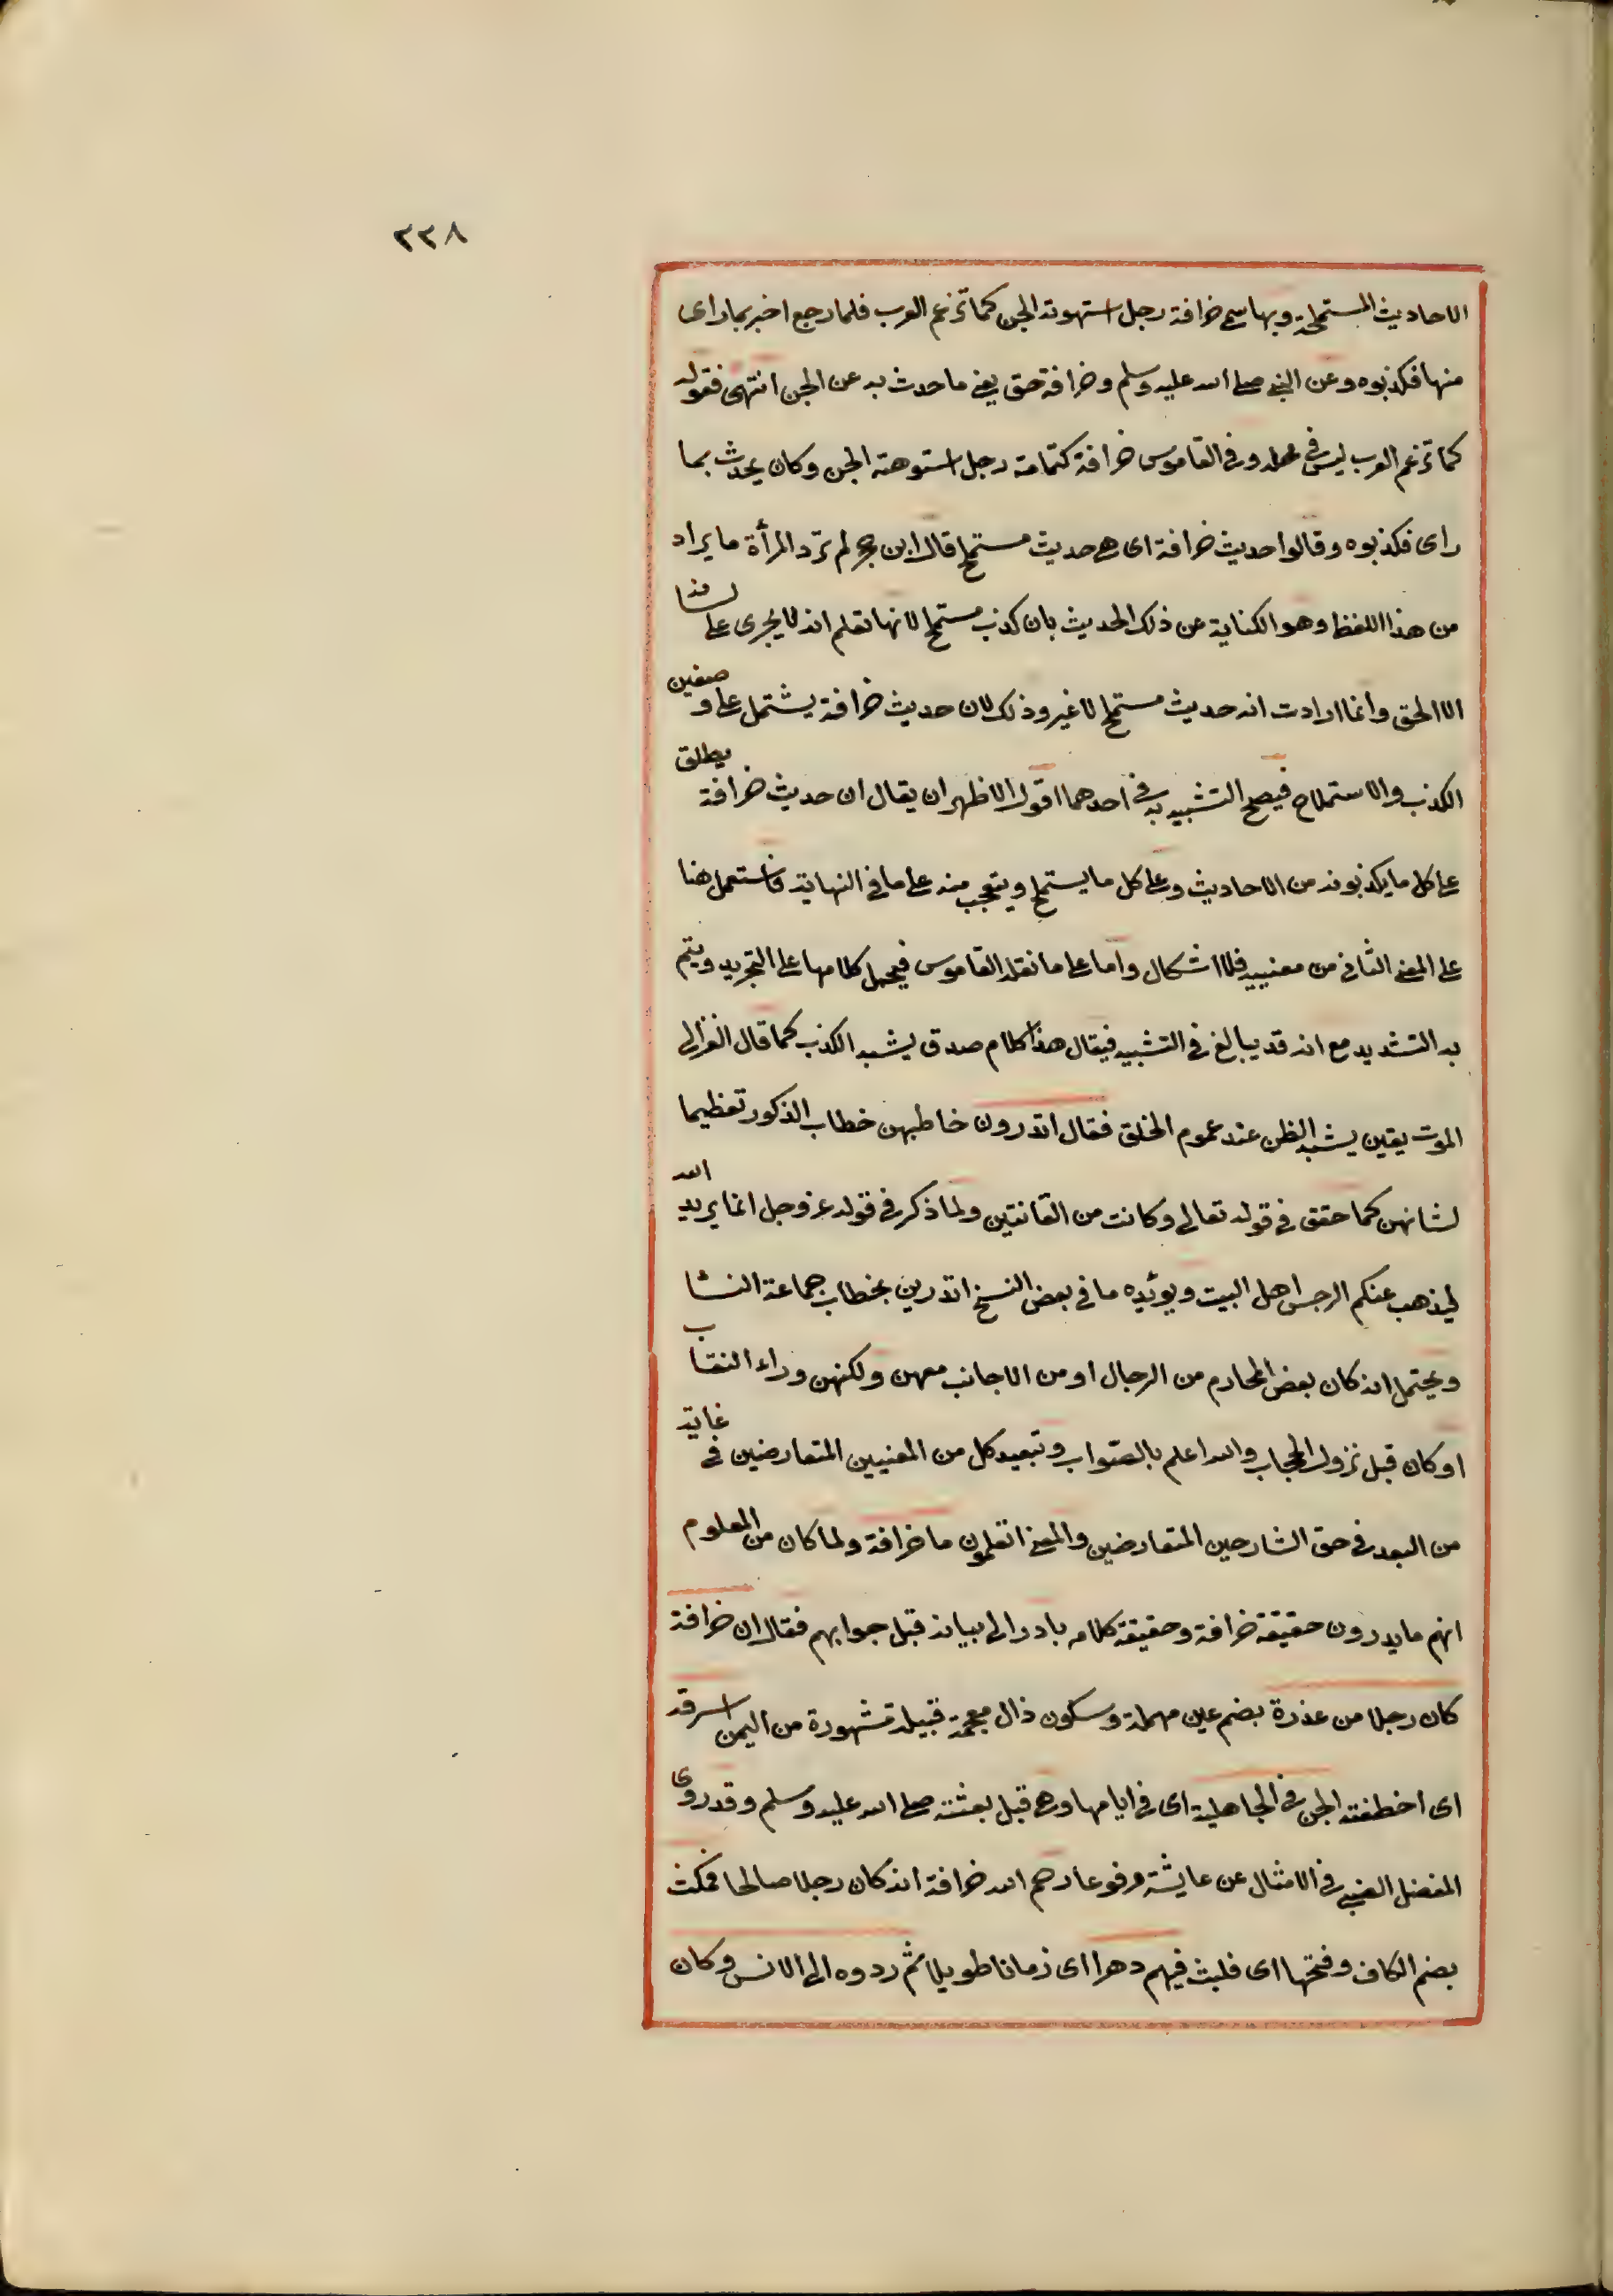 ٢٢٨
الاحاديث المستملحة وبها سمي خرافة رجل استهوته الجن كما تزعم العرب فلما رجع اخبر بما راى
منها فكذبوه وعن النبي صلى الله عليه وسلم وخرافة حق يعني ما حدث به عن الجن انتهى فقوله
كما تزعم العرب ليس في محله وفي القاموس خرافة كثمامة رجل استوهته الجن وكان يحدث بما
راى فكذبوه وقالوا حديث خرافة اى هى حديث مستملح قال ابن حجر لم ترد المرأة ما يراد
من هذا اللفظ وهو الكناية عن ذلك الحديث بان كذب مستملح لانها تعلم انه لا يجرى على لسانه
الا الحق وانما ارادت انه حديث مستملح لا غير وذلك لان حديث خرافة يشتمل على وصفين
الكذب والاستملاح فيصح التشبيه به في احدهما اقول الاظهر ان يقال ان حديث خرافة يطلق
على كل ما يكذبونه من الاحاديث وعلى كل ما يستملح ويتعجب منه على ما في النهاية فاستعمل هنا
على المعنى الثاني من معنييه فلا اشكال واما على ما نقله القاموس فيحمل كلامها على التجريد ويتم
به التشديد مع انه قد يبالغ في التشبيه فيقال هذا كلام صدق يشبه الكذب كما قال الغزالى
الموت يقين يشبه الظن عند عموم الخلق فقال اتدرون خاطبهن خطاب الذكور تعظيما
لشانهن كما حقق في قوله تعالى وكانت من القانتين ولما ذكر في قوله عز وجل انما يريد الله
ليذهب عنكم الرجس اهل البيت ويؤيده ما في بعض النسخ اتدرين بخطاب جماعة النسا
ويحتمل انه كان بعض المحارم من الرجال او من الاجانب معهن ولكنهن وراء النقاب
او كان قبل نزول الحجاب والله اعلم بالصواب وتبعيد كل من المعنيين المتعارضين في غاية
من البعد في حق الشارحين المتعارضين والمعنى اتعلمون ما خرافة ولما كان من المعلوم
انهم ما يدرون حقيقة خرافة وحقيقة كلامه بادر الى بيانه قبل جوابهم فقال ان خرافة
كان رجلا من عذرة بضم عين مهملة وسكون ذال معجمة قبيلة مشهورة من اليمن اسرقه
اى اختطفته الجن في الجاهلية اى في ايامها وهى قبل بعثته صلى الله عليه وسلم وقد روى
المفضل الضبي في الامثال عن عايشة مرفوعا رحم الله خرافة انه كان رجلا صالحا فمكث
بضم الكاف وفتحها اى فلبث فيهم دهرا اى زمانا طويلا ثم ردوه الى الانس وكان